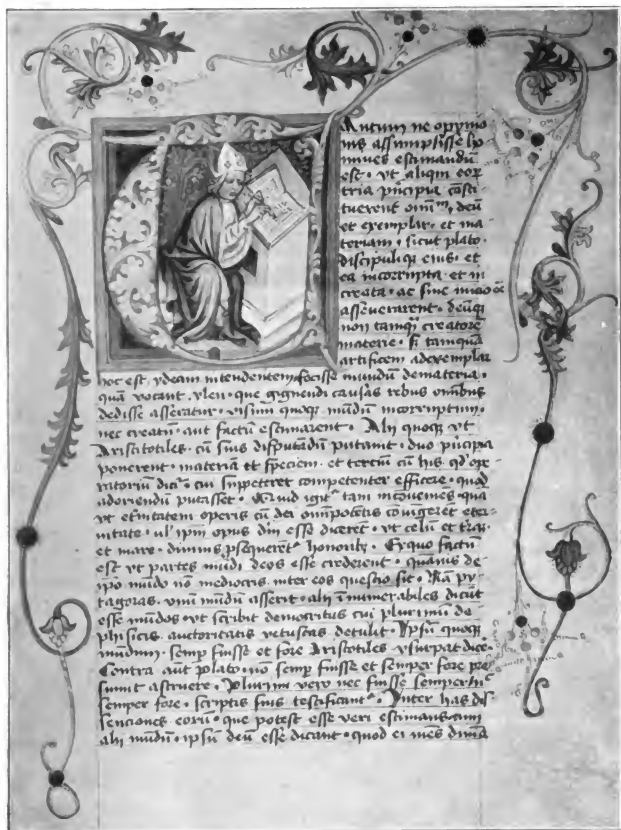 Antum ne oppinio
nis assumpsisse ho
mines estimandū
est · vt aliqui eorr
tria principia cōsti
tuerent om̄ · deū
et exemplar · et ma
teriam · sicut plato ·
discipuliqȝ eius · et
ea incorrupta · et in
creata · ac sine inicio ēē
assēuerarent · deūqȝ
non tamqȝ creatorē
materie · s̄ tamquā
artificem ad exemplar
hoc est · ydeam intendentem fecisse mundū de materia ·
quā vocant ylen · que gignendi causas rebus om̄ibus
dedisse asseratur · ip̄m quoqȝ mūdū incorruptum ·
nec creatū aut factū estimarent · Alij quoqȝ vt
Aristotiles · cū suis disputādū putauit · duo prīcipia
ponerent · materiā et speciem · et terciū cū his qd' ope
ratoriū dicit̄ · cui suppeteret competenter efficere · quod
adoriendū putasset · Quid igit̄ tam incōueniēs quā
vt et̄nitatem operis cū dei om̄ipotētis cōiungeret eter
nitate · ul' ip̄m opus deū esse diceret · vt celū et trā ·
et mare · diuinis ꝓsequeret̄ honoribȝ · Ex quo factū
est vt partes mūdi deos esse crederent · quāuis de
ip̄o mūdo nō mediocris inter eos questio sit · Nā py
tagoras · vnū mūdū asserit · alij īnumerabiles dicūt
esse mūdos · vt scribit democritus cui plurimū de
phisicis auctoritatis vetustas detulit · Ip̄sū quoqȝ
mūdum · semp̄ fuisse et fore Aristotiles vsurpat dice ·
Contra aut̄ plato · nō semp̄ fuisse et semper fore pre
sumit astruere · Plurimi vero nec fuisse semper nec
semper fore · scriptis suis testificant̄ · Inter has dis
senciones eorū · que potest esse veri estimatio · cum
alij mūdū · ip̄sū deū esse dicant · quod ei mēs diuīa